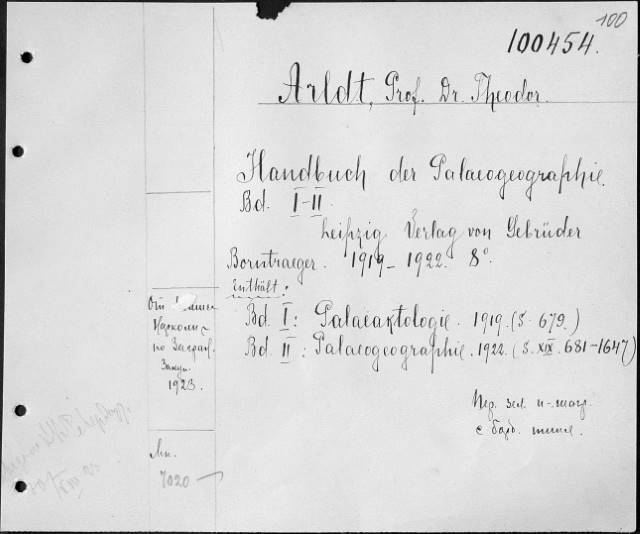 100
100454.
Arldt, Prof. Dr. Theodor.
Handbuch der Palaeogeographie.
Bd. I-II.
Leipzig Verlag von Gebrüder
Borntraeger. 1919-1922. 8°.
Enthält:
Bd. I: Palaeaktologie. 1919. (S. 679.)
Bd. II: Palaeogeographie. 1922. (S. XII. 681-1647)
От
по Заграл.
Закуп.
1923.
7020